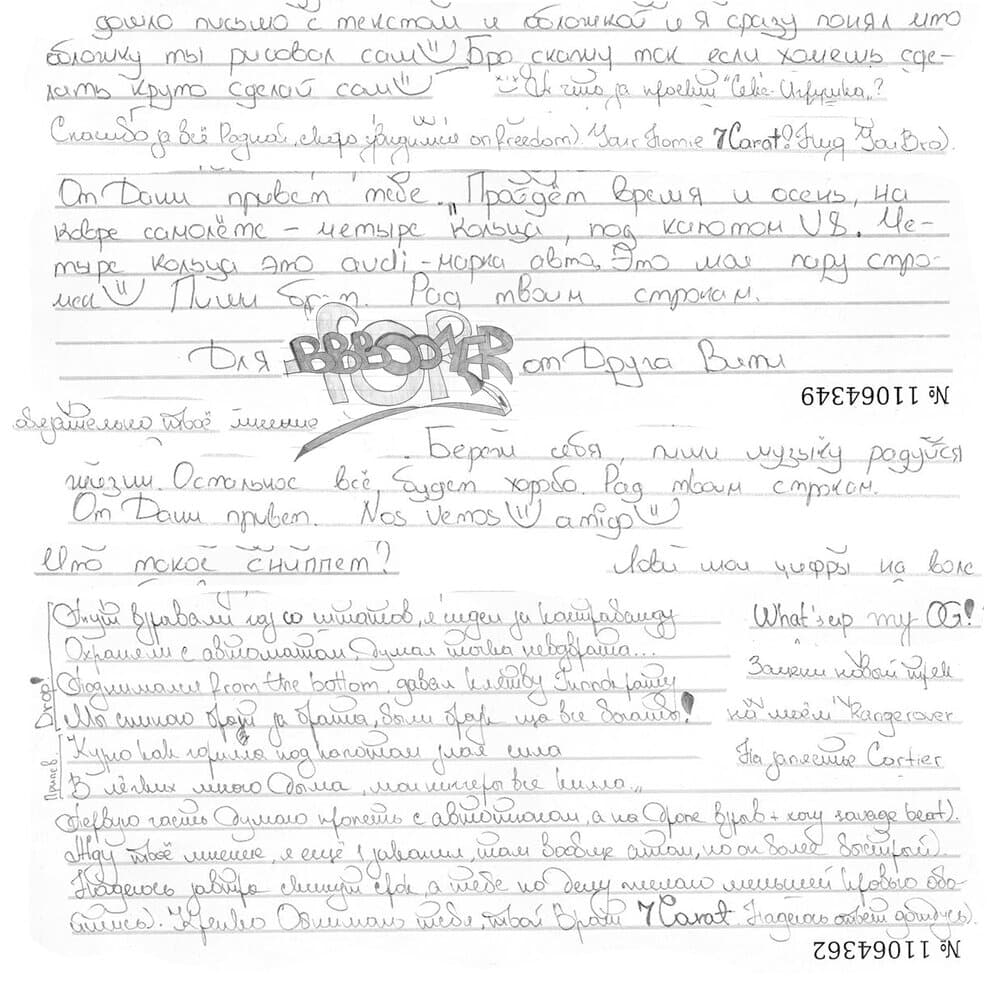 дошло письмо с текстом и обложкой и я сразу понял что
обложку ты рисовал сам Бро скажу так если хочешь сде-
лать круто сделай сам И что за проект "Секс-Игрушка"?
Спасибо за всё Родной, скоро увидимся on freedom). Your Homie 7Carat! Hug You Bro).
От Дани привет тебе. Пройдёт время и осень, на
ковре самолёте - четыре кольца, под капотом V8. Че-
тыре кольца это audi - марка авто. Это мои пару строчек
Пиши Рад твоим строкам.
Для BBBOOMER FOR от Друга Вити
№ 11064349
обязательно твоё мнение
Береги себя, пиши музыку радуйся
жизни. Остальное всё, будет хорошо. Рад твоим строкам.
От Дани привет. Nos vemos amigo
Что такое сниппет? Лови мои цифры на воле
со штатов, я сидел за контрабанду What's up my OG!
Охраняли с автоматом, Думал точка невозврата... Зацени новый трек
Drop! Поднимали from the bottom, давал клятву на моём Rangerover
Мы с много отдали за брата, были броук ща все богаты!
Припев. Курю как горилла под капотом злая сила На запястье Cartier
В лёгких много Дыма, мои ниггеры все килла
Первую часть Думаю пропеть с автотюном, а на Дропе взрыв + хочу savage beat).
Жду твоё мнение, я ещё 1 там вообще атом, но он более быстрый)
Надеюсь завтра скинут срок, а тебе по делу желаю меньшей кровью обо-
йтись). Крепко Обнимаю тебя, твой Братик 7Carat. Надеюсь ответ дождусь).
№ 11064362